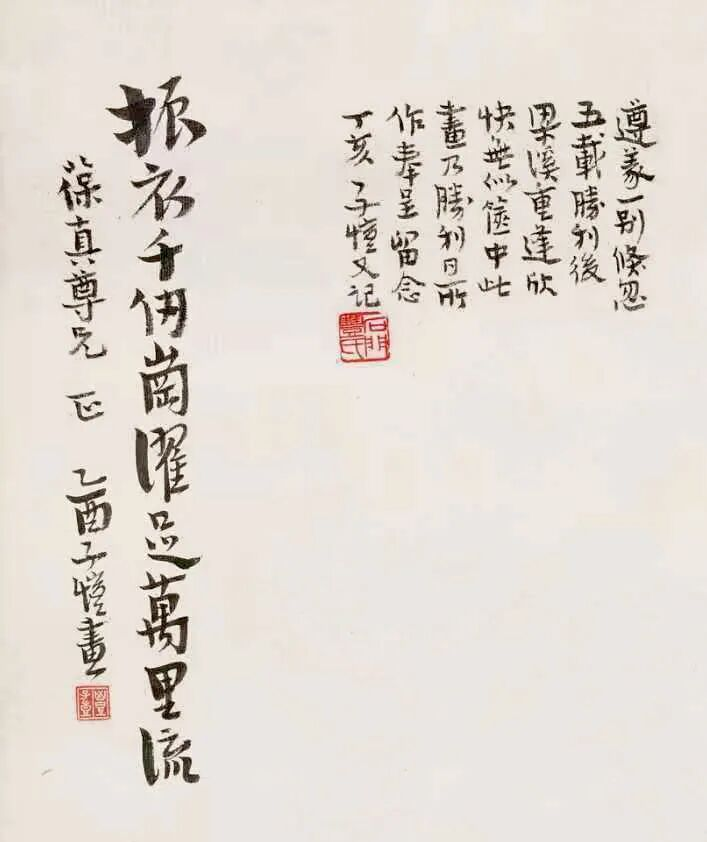 遵義一别倏忽
五載勝利後
梁溪重逢欣
快無似篋中此
畫乃勝利日所
作奉呈留念
丁亥 子愷又記
石門豐氏
振衣千仞崗濯足萬里流
葆真尊兄 正 乙酉子愷畫
豐子愷